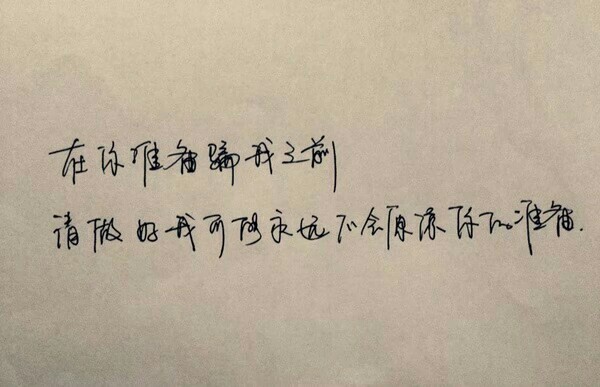 在你准备骗我之前
请做好我可能永远不会原谅你的准备.